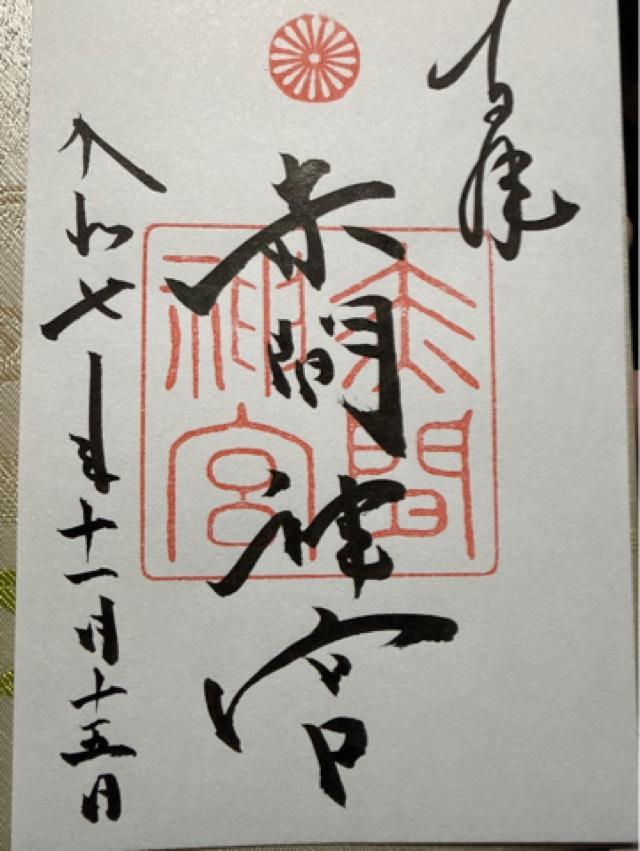 奉拝
赤間神宮
赤間神宮
令和七年十一月十五日